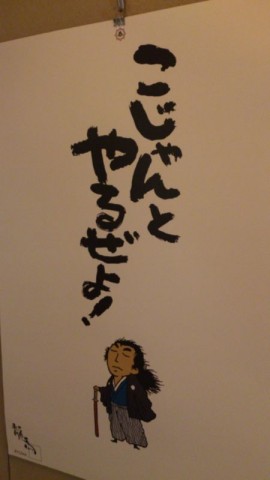 こじゃんと
やるぜよ!
龍馬